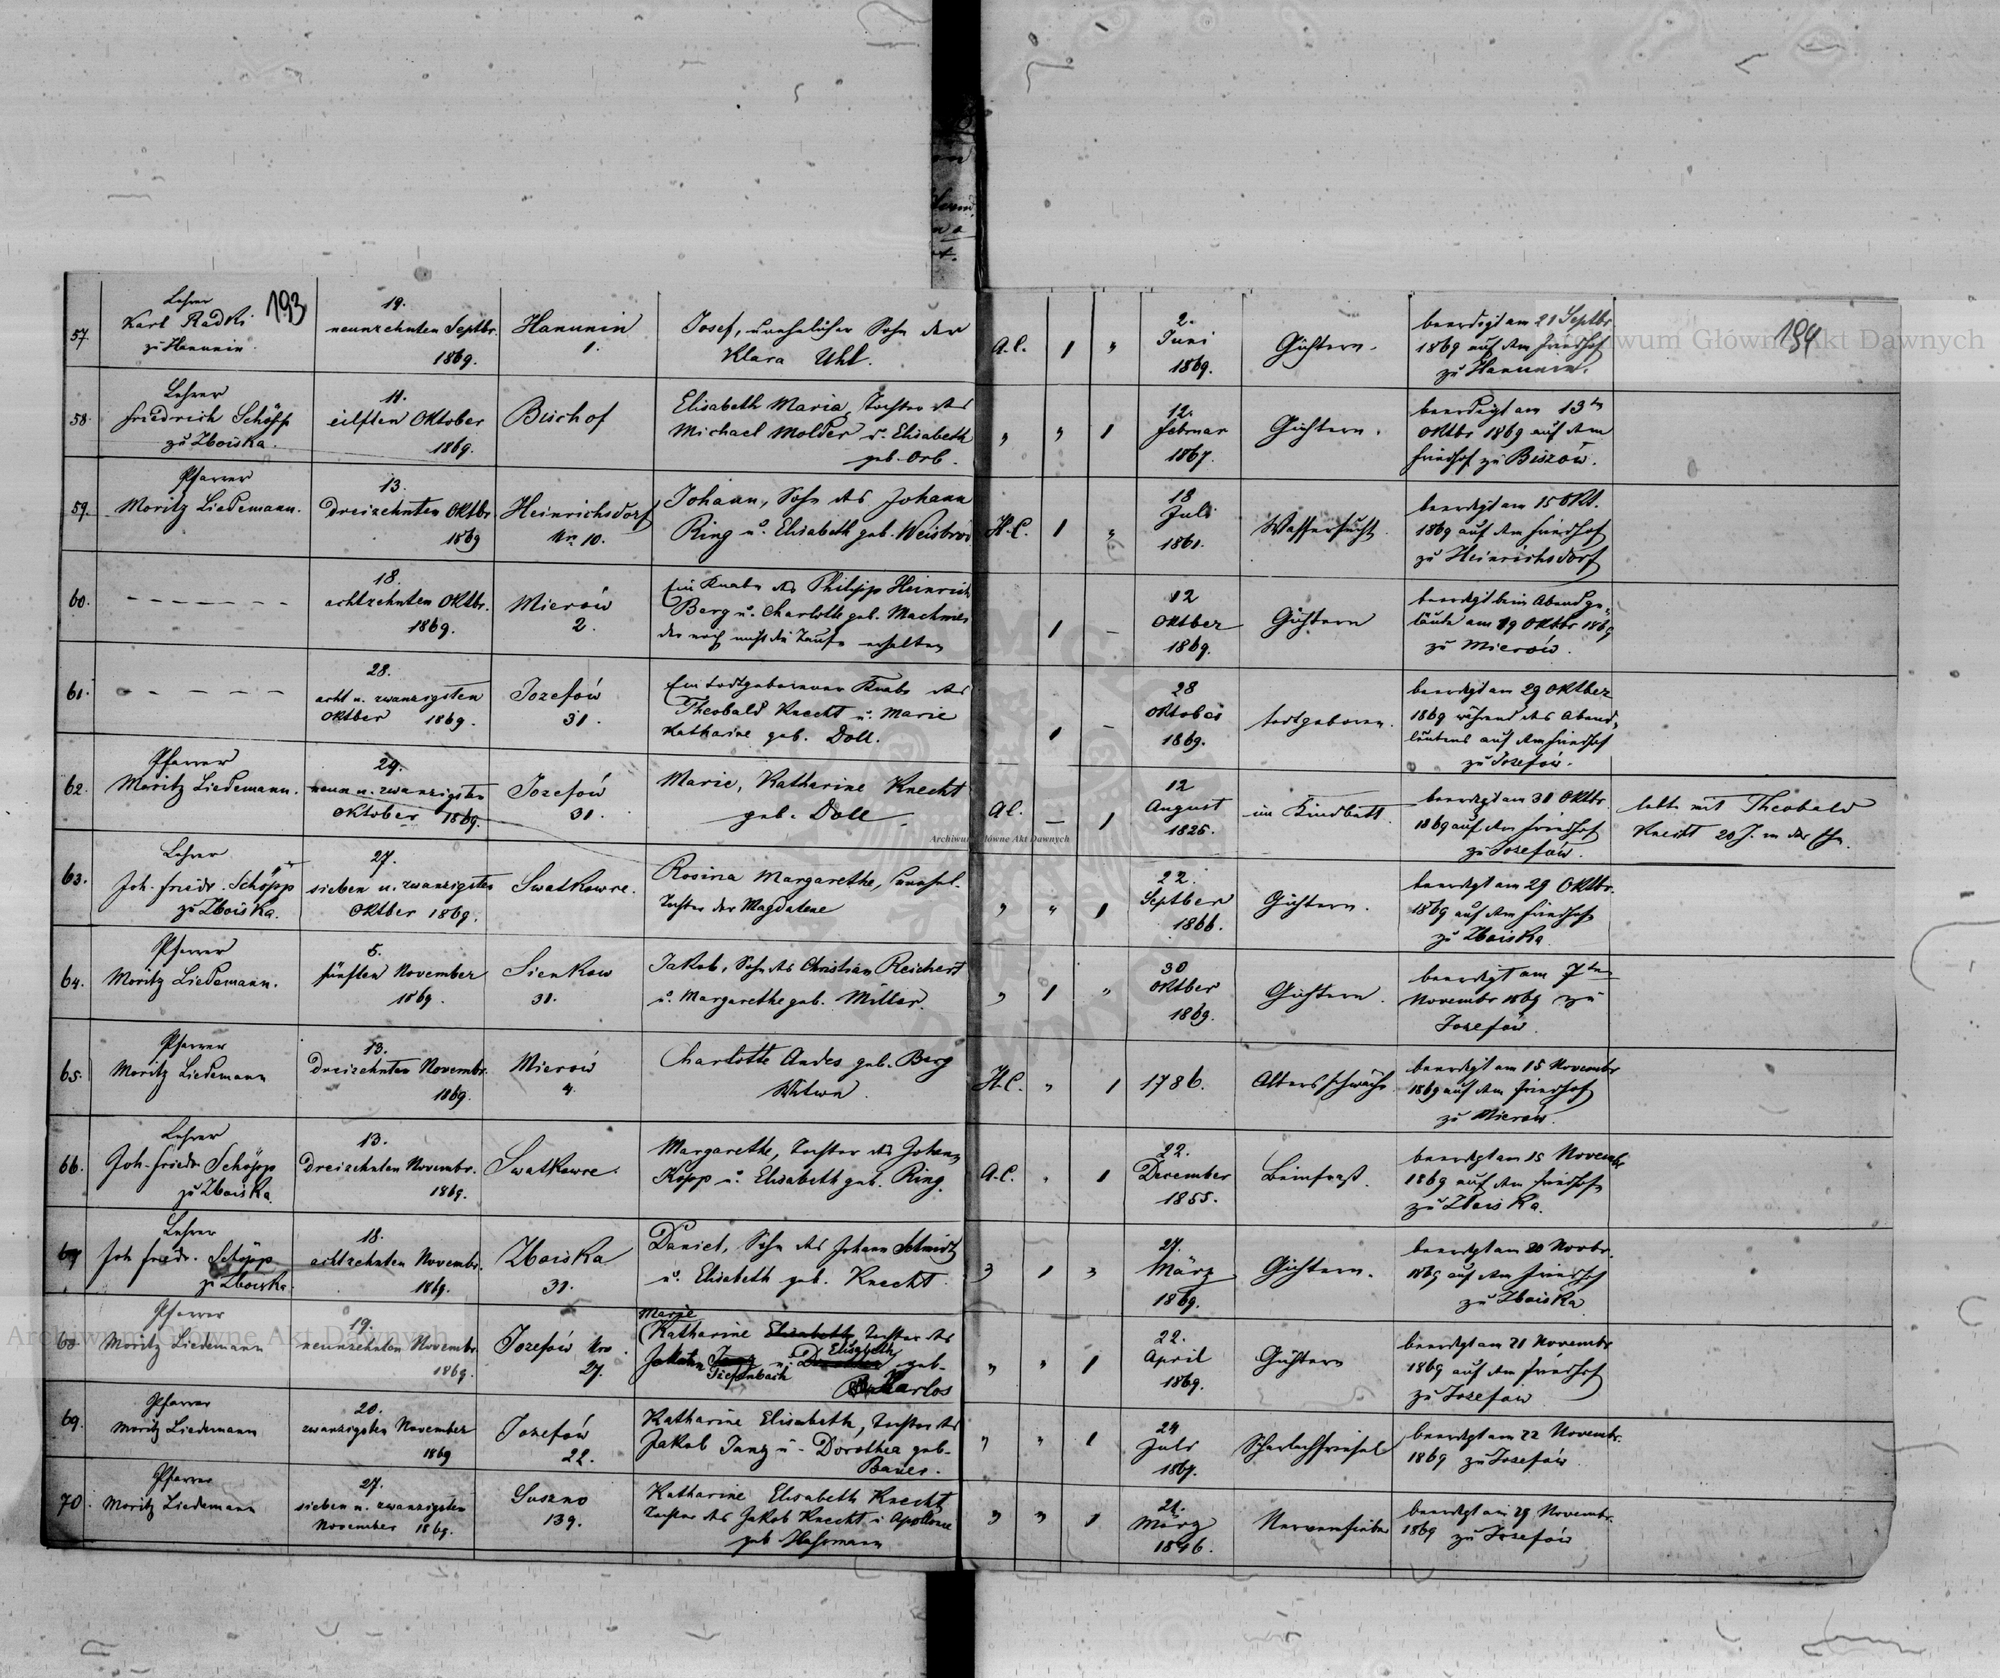 193
194
57.
Lehrer
Karl Radki
zu Hanunin.
19.
neunzehnten Septbr.
1869.
Hanunin
1.
Josef, unehelicher Sohn der
Klara Uhl.
A.C.
2.
Juni
1869.
Gichtern.
beerdigt am 21 Septbr.
1869 auf dem Friedhof
zu Hanunin.
58.
Lehrer
Friedrich Schöpp
zu Zboiska.
11.
eilften Oktober
1869.
Bischof
Elisabeth Maria, Tochter des
Michael Molder u. Elisabeth
geb. Orb.
12.
Februar
1867.
Gichtern.
beerdigt am 13ten
Oktbr 1869 auf dem
Friedhof zu Biszow.
59.
Pfarrer
Moritz Liedemann.
13.
Dreizehnten Oktbr
1869
Heinrichsdorf
Nr. 10.
Johann, Sohn des Johann
Ring u. Elisabeth geb. Weisbrod
H.C.
13
Juli
1861.
Wassersucht.
beerdigt am 15 Okt.
1869 auf dem Friedhof
zu Heinrichsdorf
60.
18.
achtzehnten Oktbr.
1869.
Mierów
2.
Ein Knabe des Philipp Heinrich
Berg u. Charlotte geb. Machmer
der noch nicht die Taufe erhalten
12
Oktber
1869.
Gichtern
beerdigt beim Abendge-
läute am 19 Oktbr 1869
zu Mierów.
61.
28.
acht u. zwanzigsten
Oktber 1869.
Jozefów
31.
Ein todtgeborener Knabe des
Theobald Knecht u. Marie
Katharine geb. Doll.
28
Oktober
1869.
todtgeboren.
beerdigt am 29 Oktber
1869 während des Abend-
läutens auf dem Friedhof
zu Jozefów.
62.
Pfarrer
Moritz Liedemann.
29.
neun u. zwanzigsten
Oktober 1869.
Jozefów
31.
Marie, Katharine Knecht
geb. Doll
A.C.
12
August
1825.
im Kindbett.
beerdigt am 31 Oktbr.
1869 auf dem Friedhof
zu Jozefów.
lebte mit Theobald
Knecht 20 J. in der Ehe.
63.
Lehrer
Joh. Friedr. Schöpp
zu Zboiska.
27.
sieben u. zwanzigsten
Oktber 1869.
Swatkowre.
Rosina Margarethe, unehel.
Tochter der Magdalene
22.
Septber
1866.
Gichtern.
beerdigt am 29 Oktbr.
1869 auf dem Friedhof
zu Zboiska
64.
Pfarrer
Moritz Liedemann.
5.
fünften November
1869.
Sienkow
31.
Jakob, Sohn des Christian Reichert
u. Margarethe geb. Miller.
30
Oktber
1869.
Gichtern.
beerdigt am 7ten
Novembr 1869 zu
Jozefów.
65.
Pfarrer
Moritz Liedemann
13.
Dreizehnten Novembr.
1869.
Mierów
4.
Charlotte Andes geb. Berg
Witwe.
H.C.
1786.
Altersschwäche
beerdigt am 15 Novembr
1869 auf dem Friedhof
zu Mierów.
66.
Lehrer
Joh. Friedr. Schöpp
zu Zboiska.
13.
Dreizehnten Novembr.
1869.
Swatkowre.
Margarethe, Tochter des Johann
Köpp u. Elisabeth geb. Ring.
A.C.
22.
December
1855.
Beinfraß.
beerdigt am 15 Novembr
1869 auf dem Friedhof
zu Zboiska.
67
Lehrer
Joh Friedr. Schöpp
zu Zboiska.
18.
achtzehnten Novembr.
1869.
Zboiska
31.
Daniel, Sohn des Johann Schmidt
u. Elisabeth geb. Knecht.
27.
März
1869.
Gichtern.
beerdigt am 20 Novbr.
1869 auf dem Friedhof
zu Zboiska
68.
Pfarrer
Moritz Liedemann
19.
neunzehnten Novembr.
1869.
Jozefów Nro
27.
Marie
Katharine Elisabeth, Tochter des
Elisabeth
Jakob Janz u. Dorothea geb.
Tiefenbach
Karlos
22.
April
1869.
Gichtern
beerdigt am 21 Novembr
1869 auf dem Friedhof
zu Jozefów
69.
Pfarrer
Moritz Liedemann
20.
zwanzigsten November
1869
Jozefów
22.
Katharine Elisabeth, Tochter des
Jakob Janz u. Dorothea geb.
Bauer.
24
Juli
1867.
Scharlachfriesel
beerdigt am 22 Novembr.
1869 zu Jozefów
70.
Pfarrer
Moritz Liedemann
27.
sieben u. zwanzigsten
November 1869.
Suszno
139.
Katharine Elisabeth Knecht
Tochter des Jakob Knecht u Apollonie
geb.
21.
März
1846.
Nervenfieber
beerdigt am 29 Novembr.
1869 zu Jozefów
Archiwum Główne Akt Dawnych
Archiwum Główne Akt Dawnych
Archiwum Główne Akt Dawnych